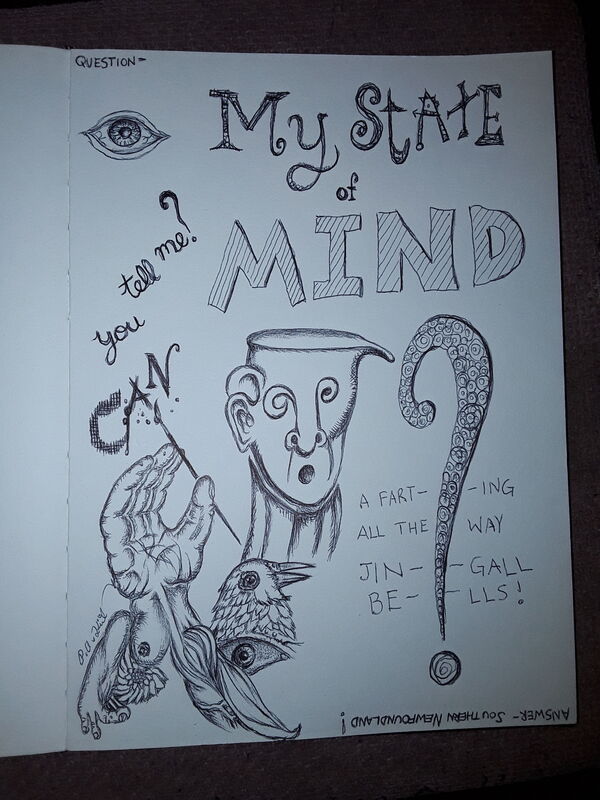 QUESTION-
My StAtE
of
MIND
CAN
you
tell me?
?
A FART- -ING
ALL THE WAY
JIN- -GALL
BE- -LLS!
ANSWER- SOUTHERN NEWFOUNDLAND!